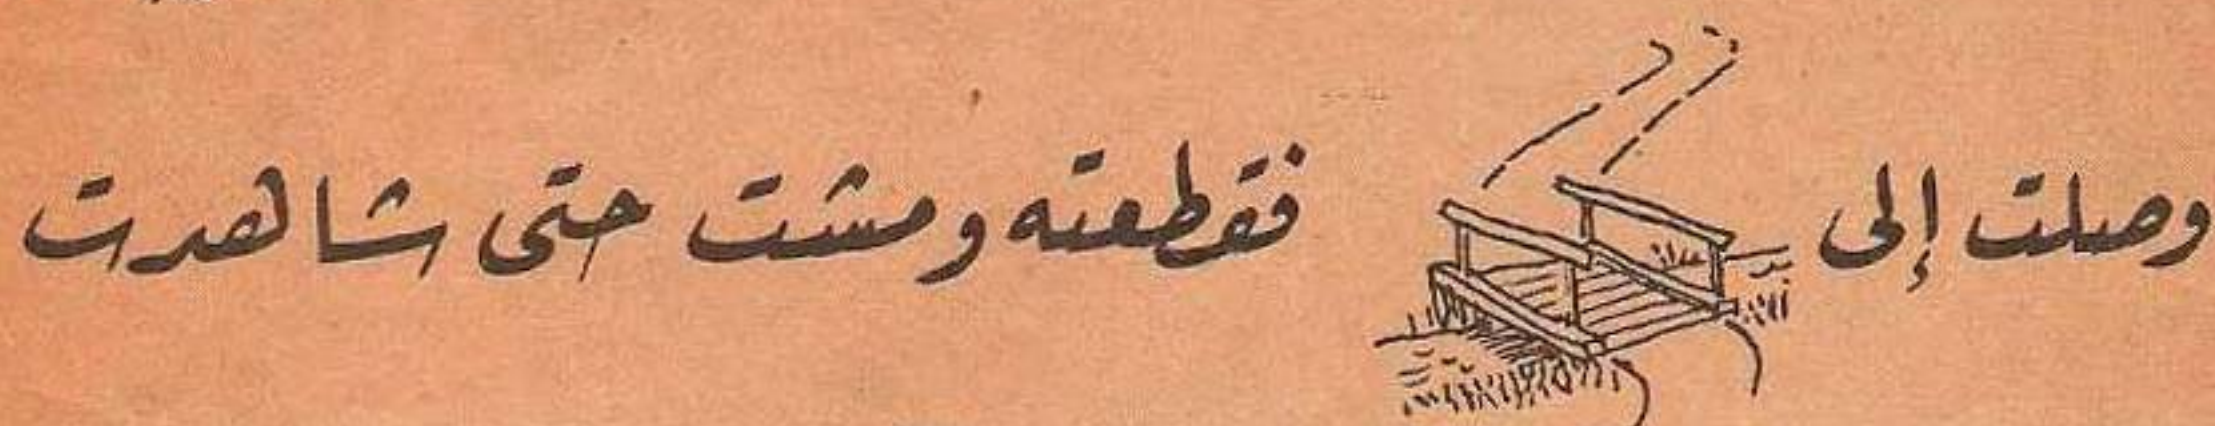 وصلت إلى فقطعته ومشت حتى شاهدت